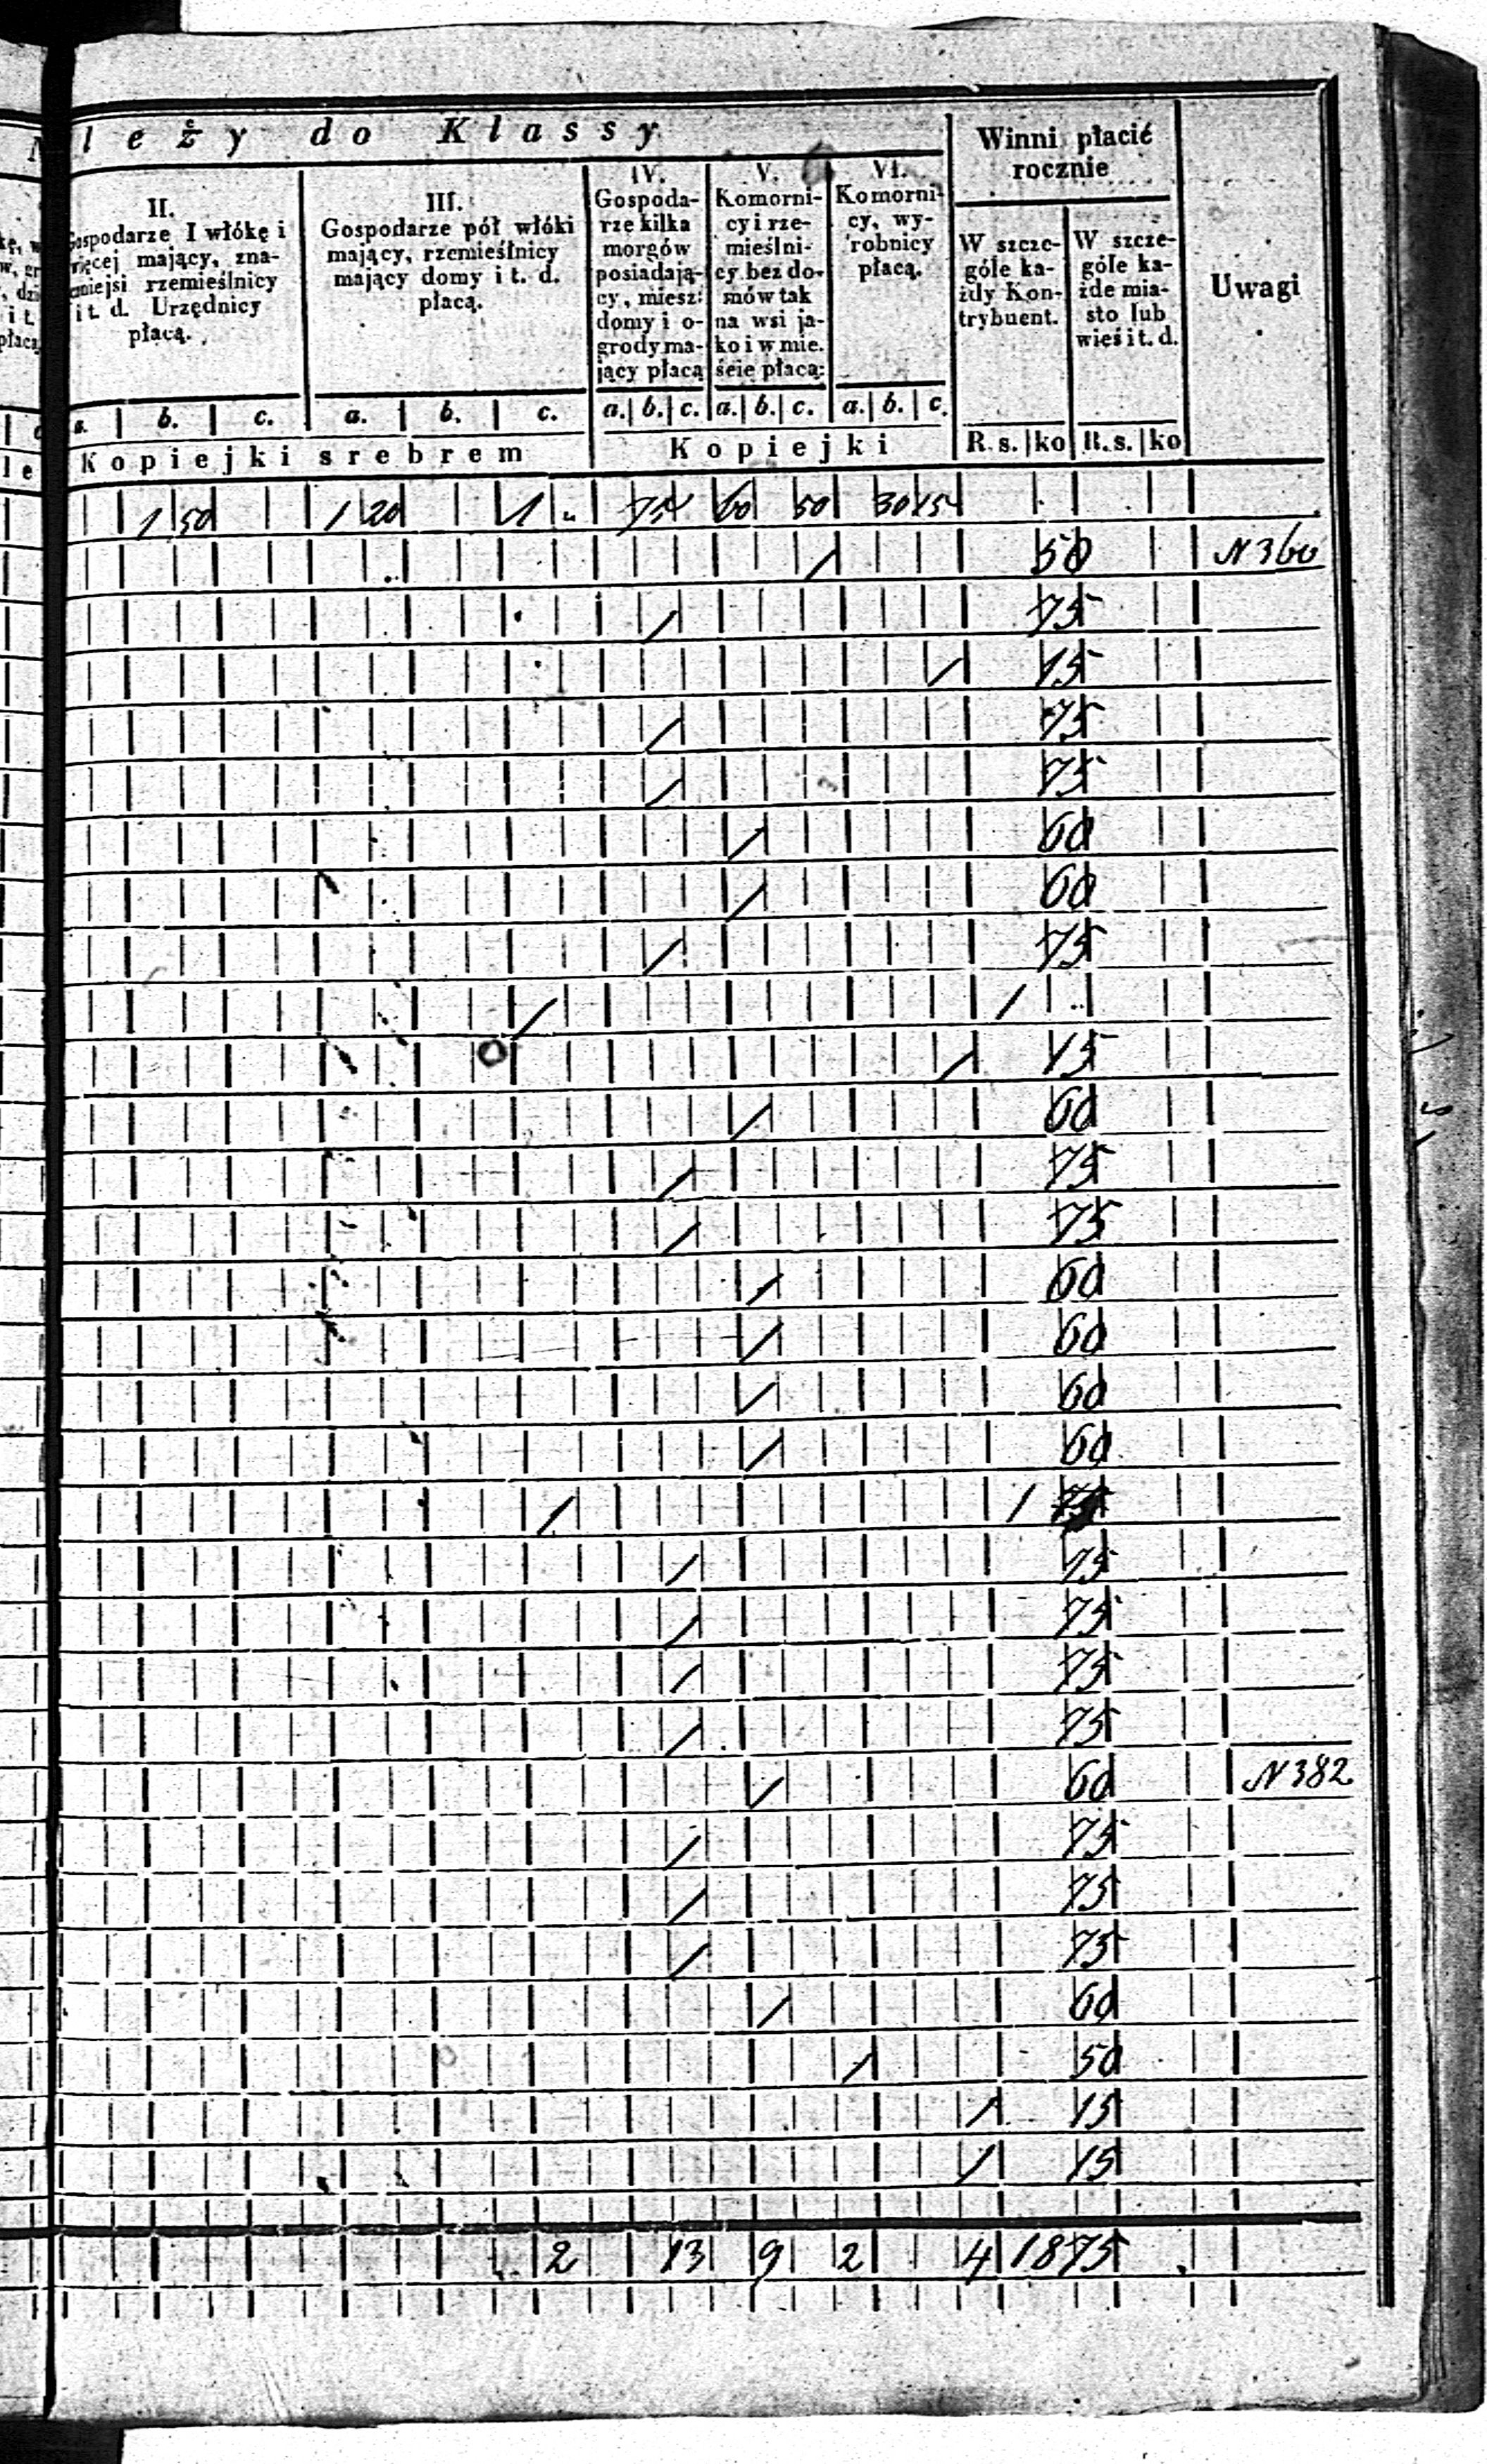 leży do Klassy
Winni płacić
rocznie
II.
Gospodarze I włókę i
więcej mający, zna-
czniejsi rzemieślnicy
i t. d. Urzędnicy
płacą.
III.
Gospodarze pół włóki
mający, rzemieślnicy
mający domy i t. d.
płacą.
IV.
Gospoda-
rze kilka
morgów
posiadają-
cy, miesz:
domy i o-
grody ma-
jący płacą
V.
Komorni-
cy i rze-
mieślni-
cy bez do-
mów tak
na wsi ja-
ko i w mie.
ście płacą:
VI.
Komorni-
cy, wy-
robnicy
płacą.
W szcze-
góle ka-
żdy Kon-
trybuent.
W szcze-
góle ka-
żde mia-
sto lub
wieś i t. d.
Uwagi
a. b. c. a. b. c. a. b. c. a. b. c. a. b. c.
Kopiejki srebrem Kopiejki R. s. ko R. s. ko
1 50 1 20 1 " 75 60 50 30 15
/ 50 N 360
/ 75
/ 15
/ 75
/ 75
/ 60
/ 60
/ 75
/ 1 "
/ 15
/ 60
/ 75
/ 75
/ 60
/ 60
/ 60
/ 60
/ 1
/ 75
/ 75
/ 75
/ 75
/ 60 N 382
/ 75
/ 75
/ 75
/ 60
/ 50
/ 15
/ 15
2 13 9 2 4 18 75